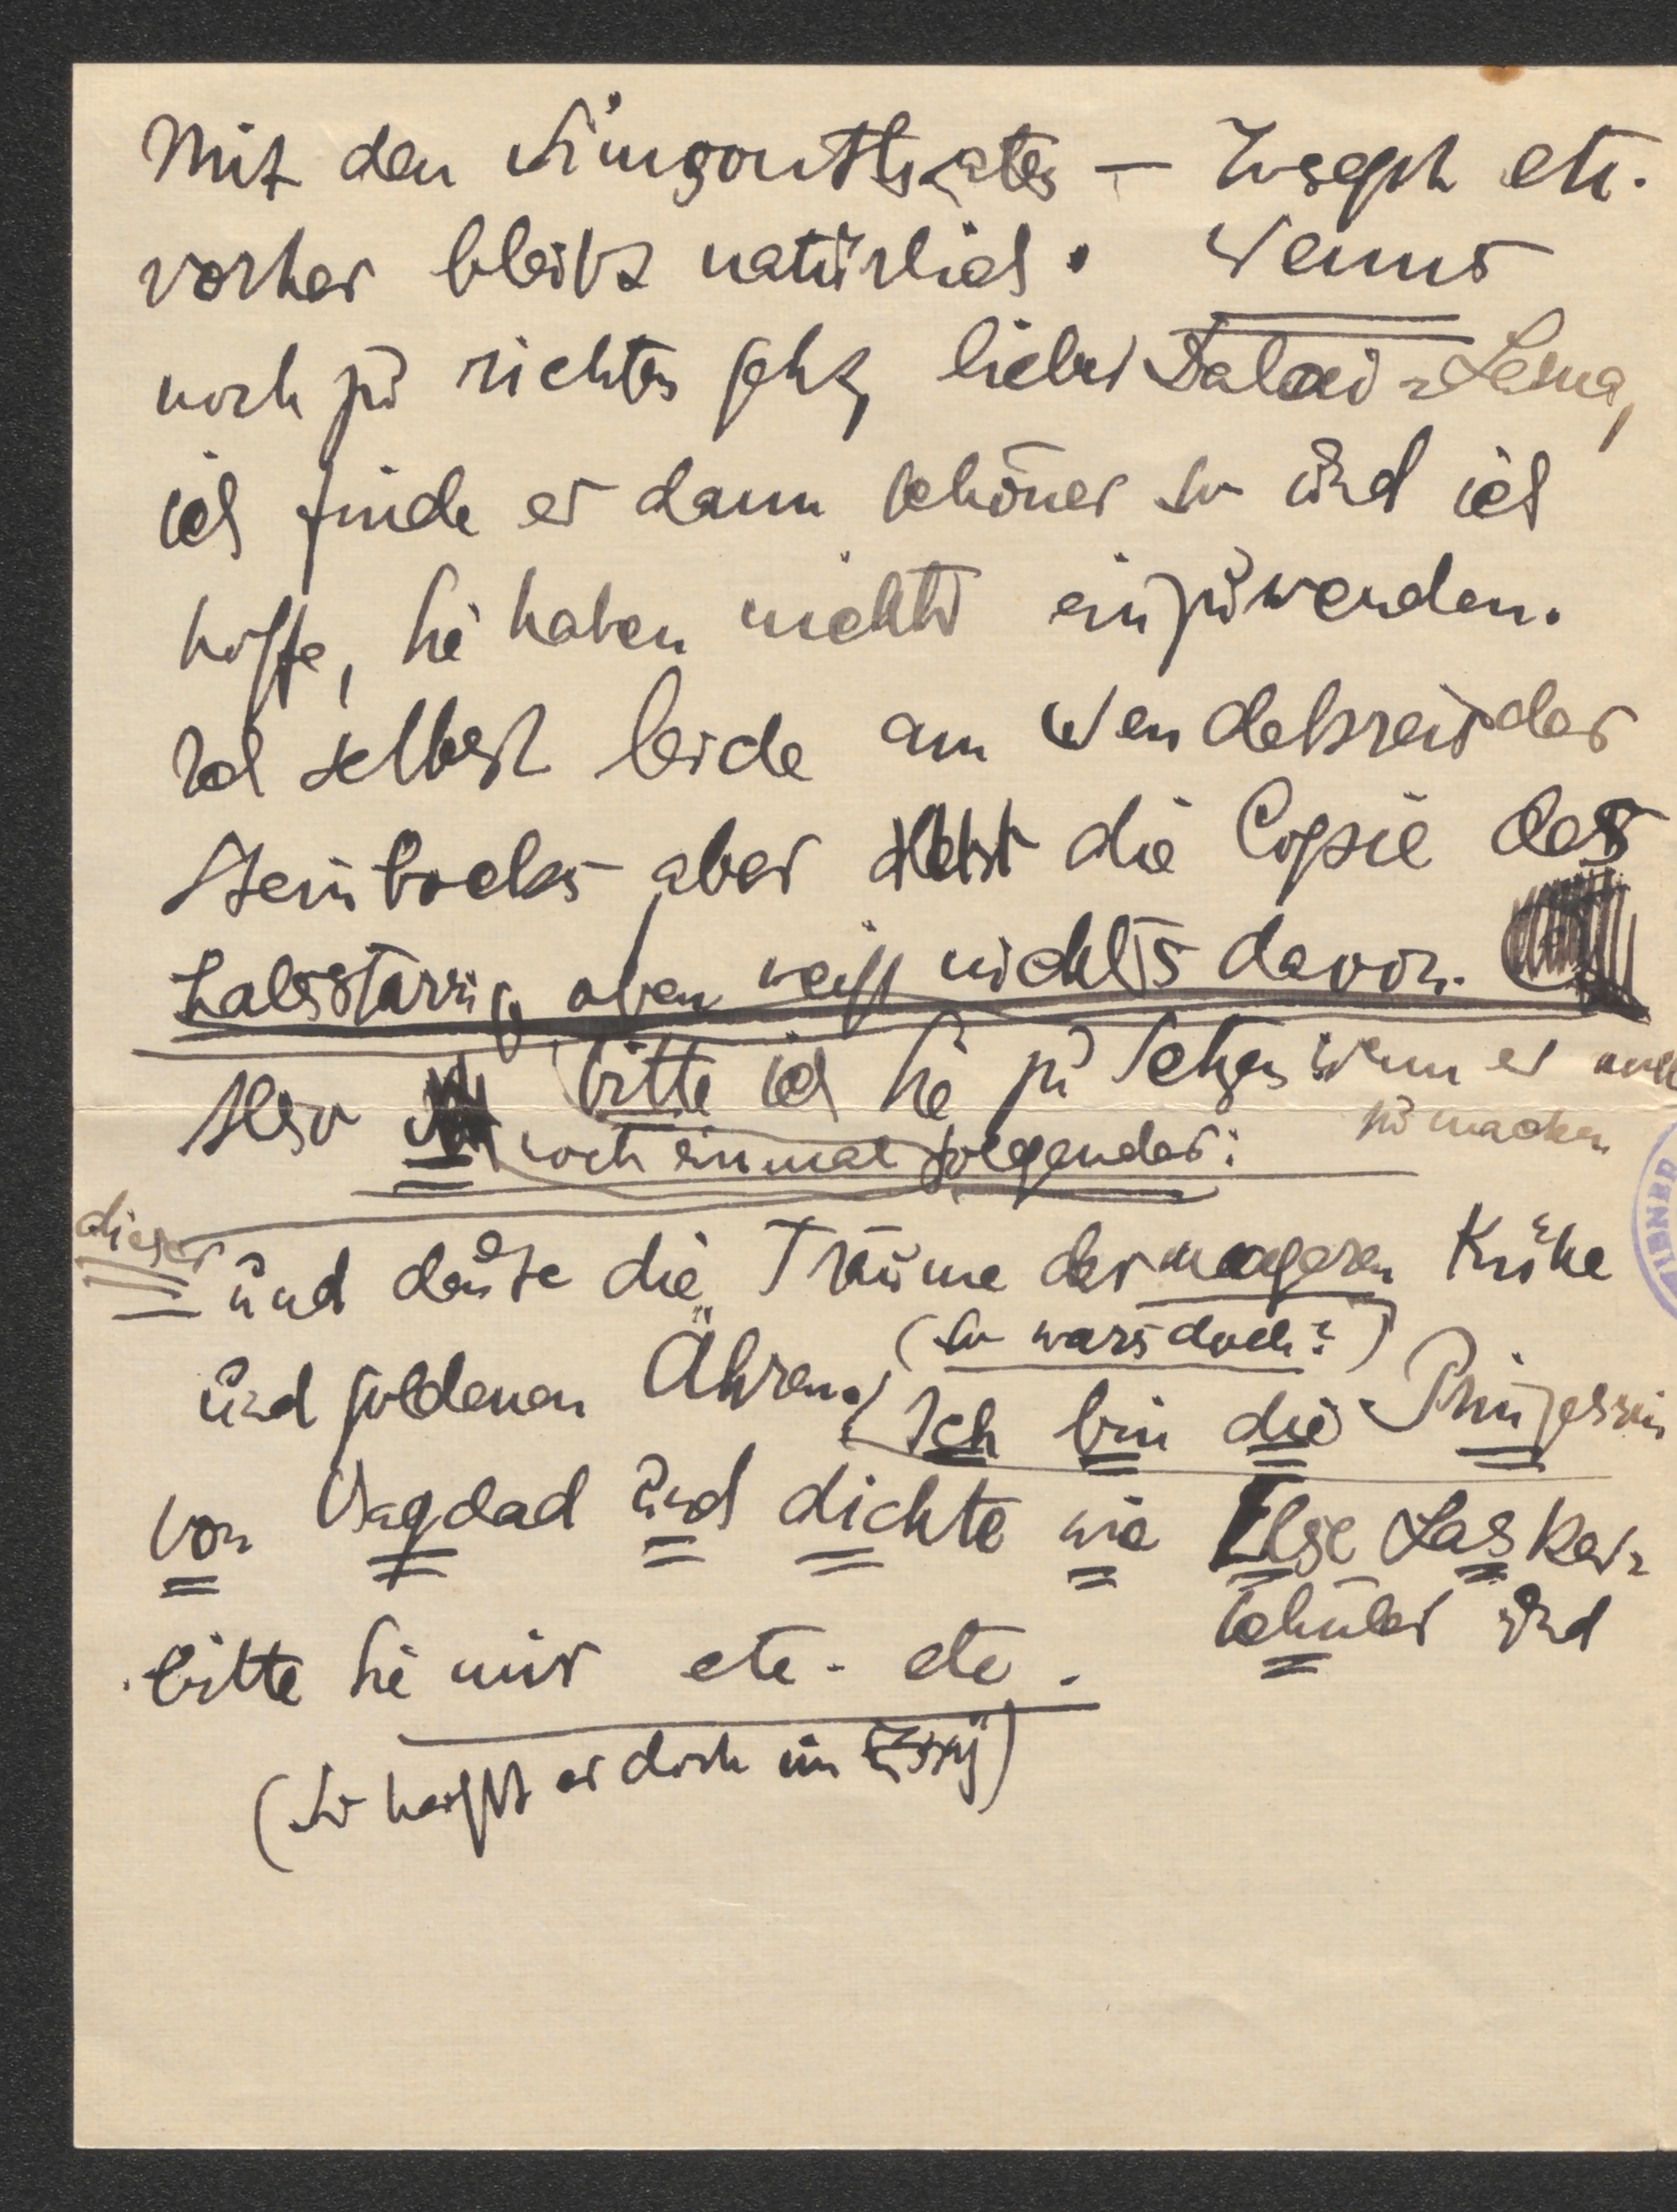 Mit den Küngonttheater — Joseph etc.
vorher bleibt natürlich. Wenns
noch zu richten geht, lieber Dalai-Lama,
ich finde es dann schöner so und ich
hoffe, Sie haben nichts einzuwenden.
Ich selbst leide am Wendekreis des
Steinbocks aber die Copie des
halsstarrig oben weiß nichts davon.
Also bitte ich Sie zu setzen wenn es noch
zu machen
noch einmal folgendes:
dieses
und deute die Träume der mageren Kühe
(So wars doch?)
und goldenen Ähren. Ich bin die Prinzessin
von Bagdad und dichte wie Else Lasker-
Schüler und
bitte Sie mir etc. etc.
(So heißt es doch im Essay)